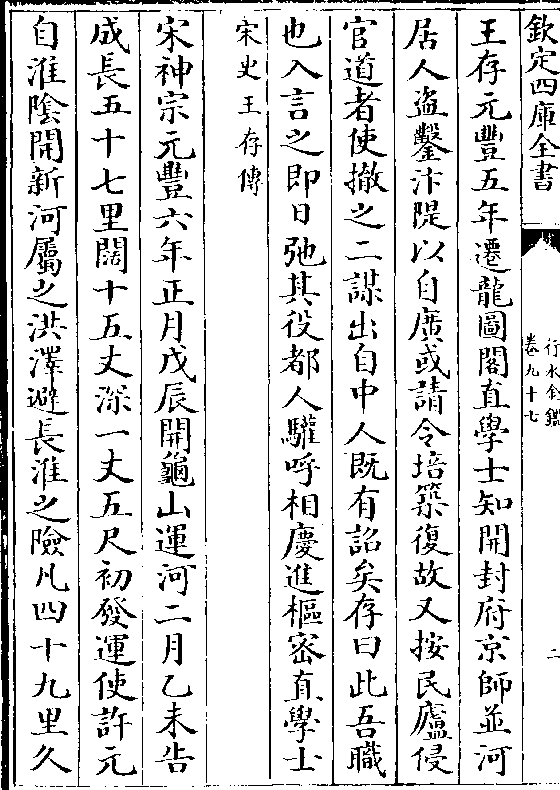 欽定四庫全書
行水金鑑
卷九十七
二
王存元豐五年遷龍圖閣直學士知開封府京師並河
居人盜鑿汴隄以自廣或請令培築復故又按民廬侵
官道者使撤之二謀出自中人既有詔矣存曰此吾職
也入言之即日弛其役都人驩呼相慶進樞密直學士
宋史王存傳
宋神宗元豐六年正月戊辰開龜山運河二月乙未告
成長五十七里闊十五丈深一丈五尺初發運使許元
自淮陰開新河屬之洪澤避長淮之險凡四十九里久